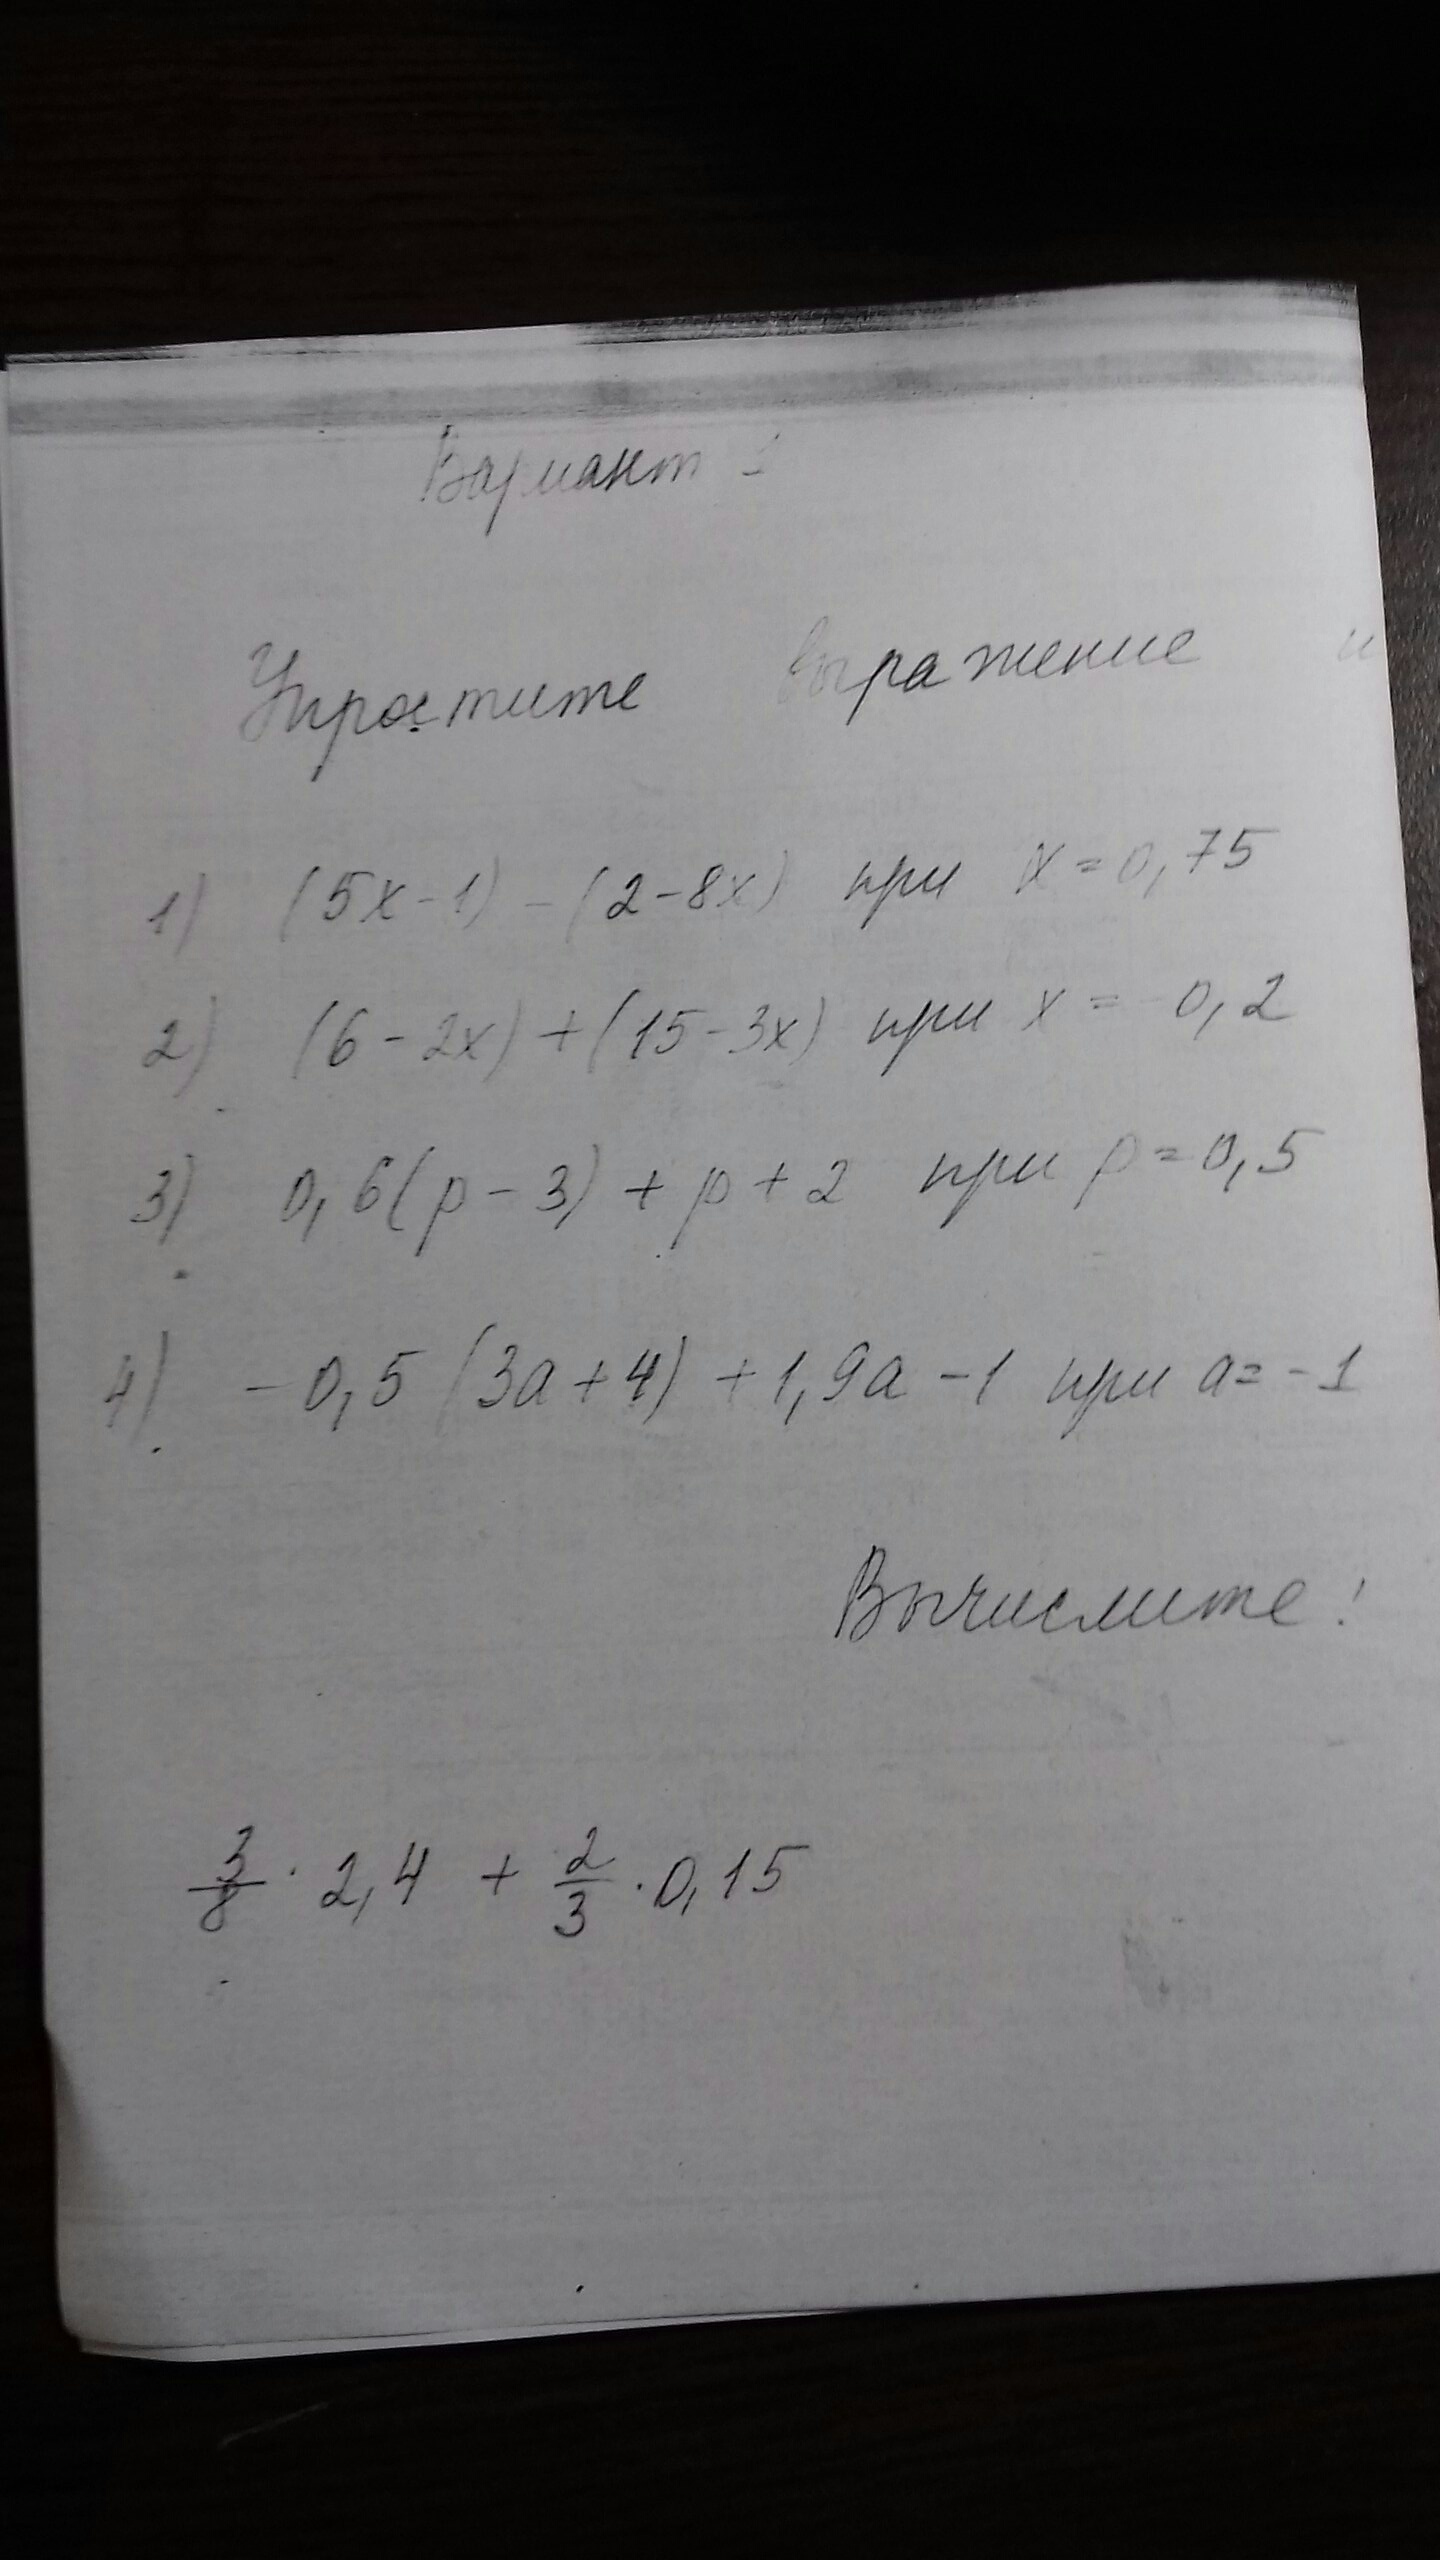 Вариант 1
Упростите выражение и
1) (5x-1) - (2-8x) при x=0,75
2) (6-2x)+(15-3x) при x = -0,2
3) 0,6(p-3)+p+2 при p=0,5
4) -0,5(3a+4)+1,9a-1 при a=-1
Вычислите!
3/8 · 2,4 + 2/3 · 0,15